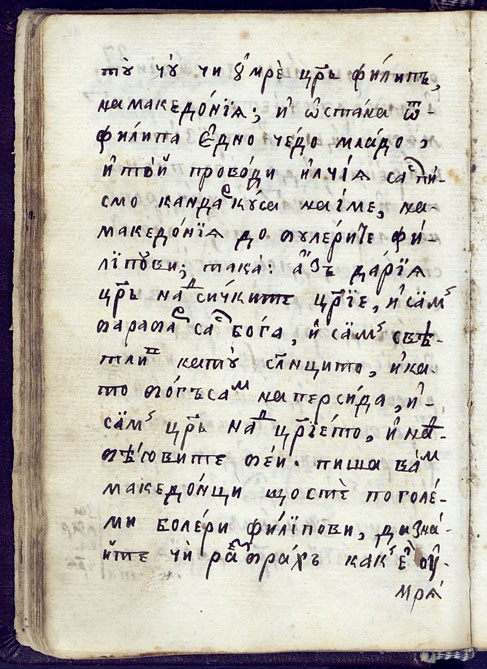 тѹ чѹ чи ѹмрѐ цр҃ь фили́пъ,
на македо́нїѧ; и҆ ѡ҆ста́на ѿ
фили́па є҆дно че́до младо,
и҆ то́й проводи и҆лчі́ѧ са с пи-
смо канда с кꙋса на і҆ме, на
македо́нїѧ до ѳꙋлери́те фи-
ліпови; така: а҆зъ да́рїѧ
цр҃ь над си́чките цр҃їе, и҆ са́мъ
сас бо́га, и҆ са́мъ свѣ-
тли катѹ сл҃нцито, и҆ ка-
то на перси́да, и҆-
са́мъ цр҃ь над цр҃їе́то, и҆ на-
пиша вам
македо́нци що стѐ по голе́-
ми боле́ри фили́пови, да зна́-
йте чѝ разбрахъ какъ є҆ ѹ҆-
мрѧ́